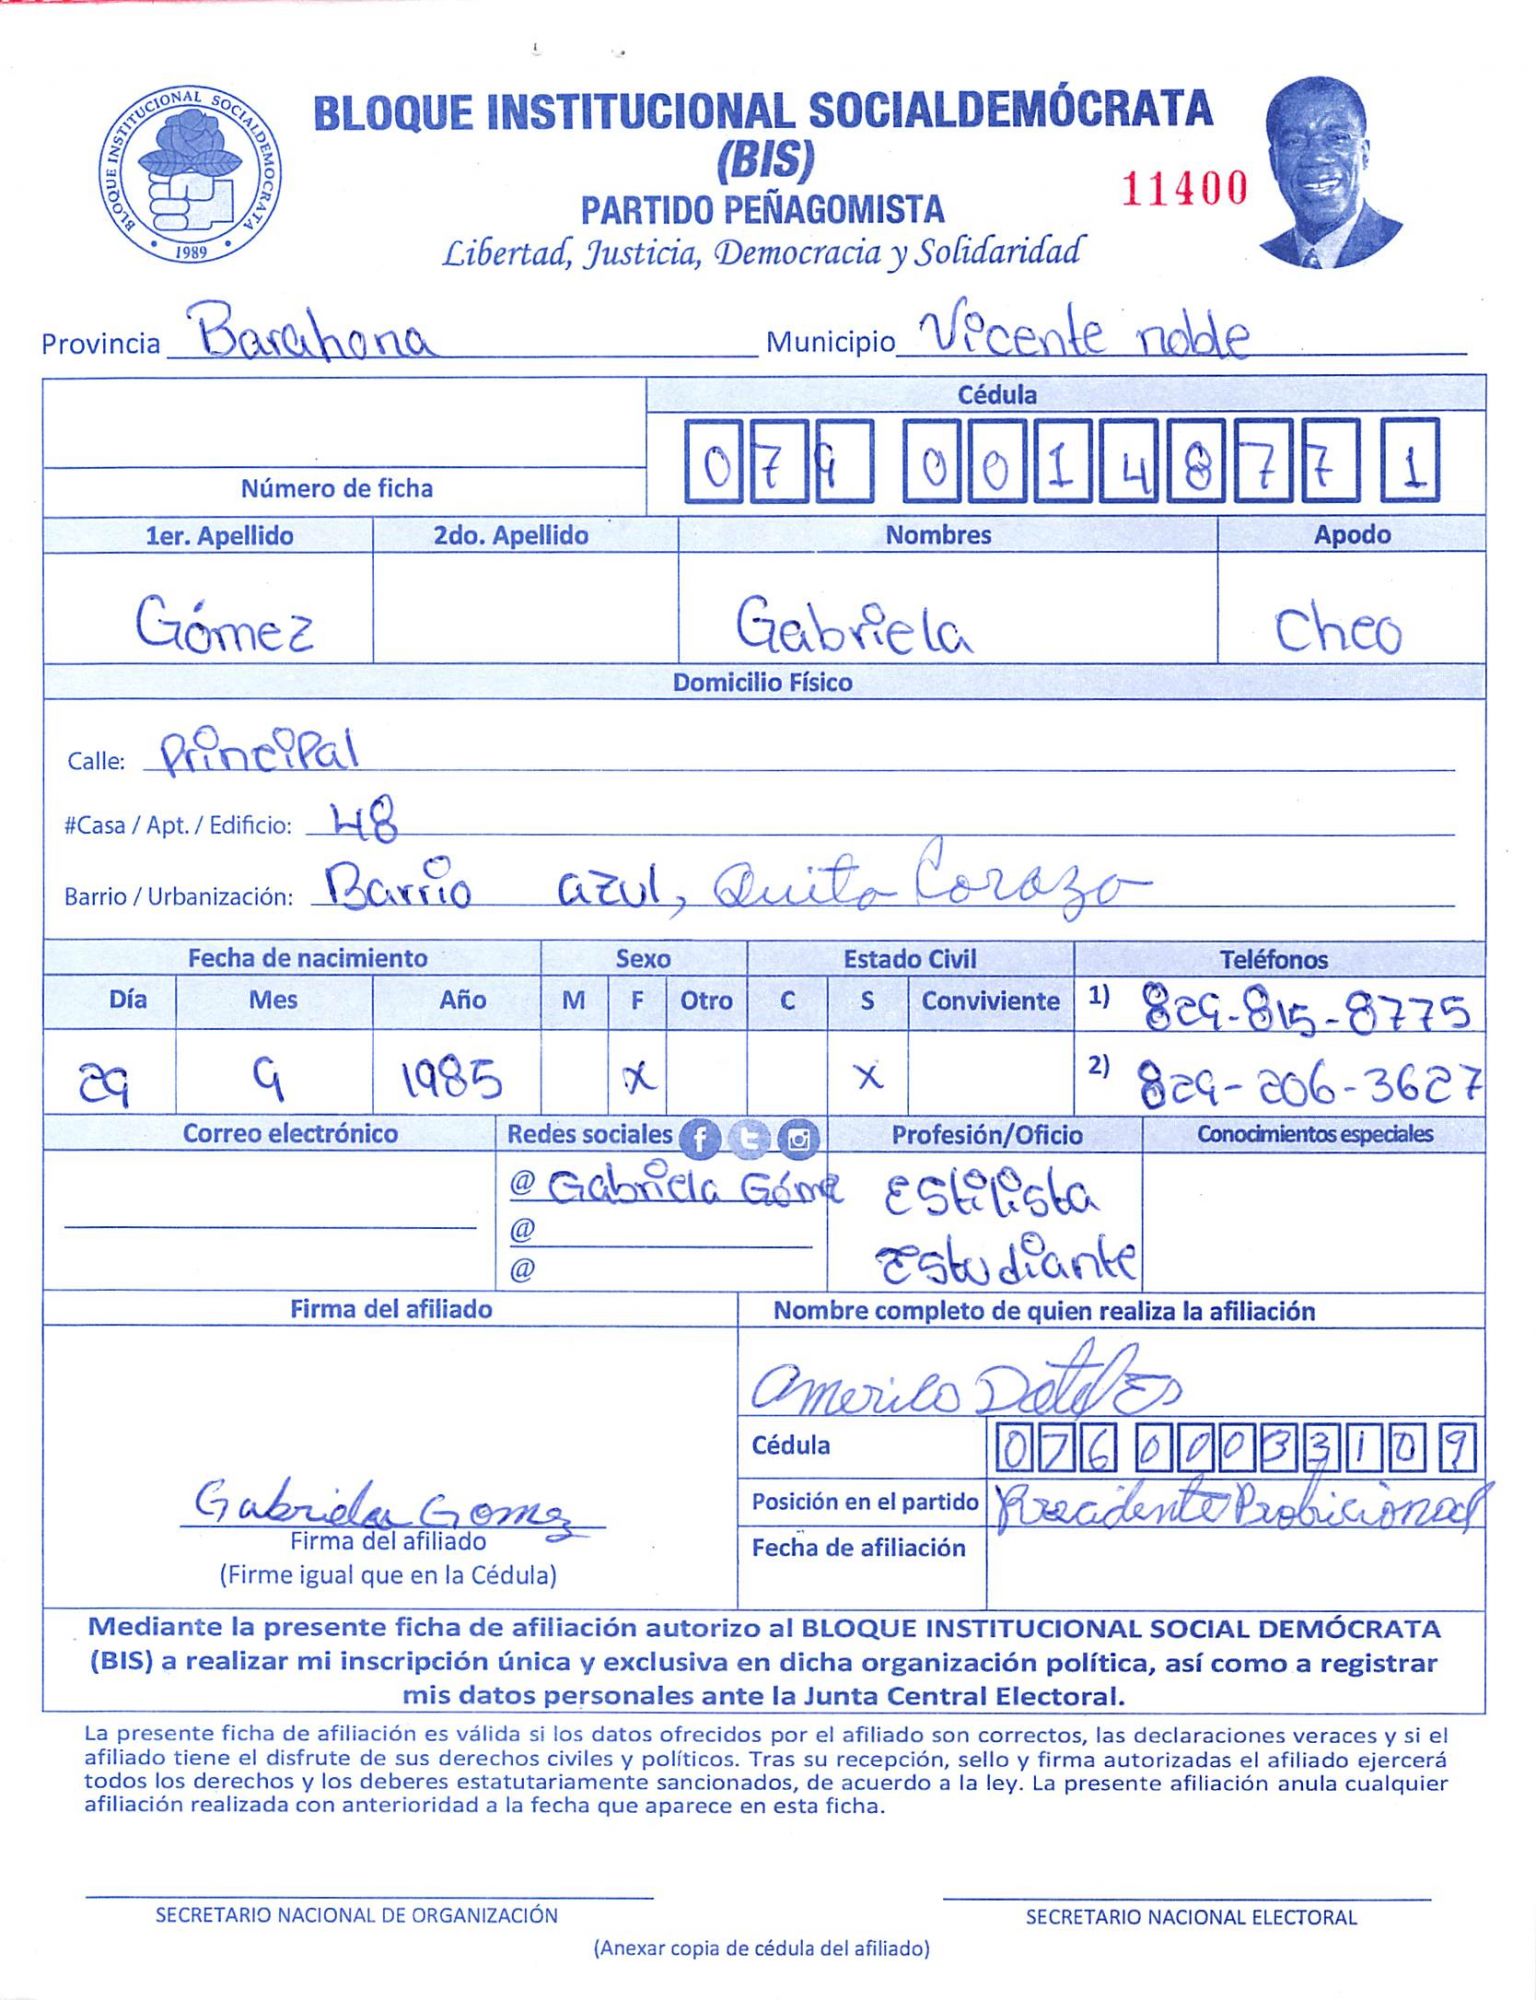 BLOQUE INSTITUCIONAL SOCIALDEMÓCRATA
BLOQUE INSTITUCIONAL SOCIALDEMÓCRATA
(BIS)
1989
PARTIDO PEÑAGOMISTA
11400
Libertad, Justicia, Democracia y Solidaridad
Provincia Barahona Municipio Vicente noble
Cédula
079 0014877 1
Número de ficha
1er. Apellido 2do. Apellido Nombres Apodo
Gómez Gabriela Cheo
Domicilio Físico
Calle: Principal
#Casa / Apt. / Edificio: 48
Barrio / Urbanización: Barrio azul, Quita Corazo
Fecha de nacimiento Sexo Estado Civil Teléfonos
Día Mes Año M F Otro C S Conviviente 1) 829-815-8775
29 9 1985 x x 2) 829-206-3627
Correo electrónico Redes sociales Profesión/Oficio Conocimientos especiales
@ Gabriela Góme Estilista
@ Estudiante
@
Firma del afiliado Nombre completo de quien realiza la afiliación
Cédula 076 0003310 9
Gabriela Gomez
Posición en el partido
Firma del afiliado
Fecha de afiliación
(Firme igual que en la Cédula)
Mediante la presente ficha de afiliación autorizo al BLOQUE INSTITUCIONAL SOCIAL DEMÓCRATA
(BIS) a realizar mi inscripción única y exclusiva en dicha organización política, así como a registrar
mis datos personales ante la Junta Central Electoral.
La presente ficha de afiliación es válida si los datos ofrecidos por el afiliado son correctos, las declaraciones veraces y si el
afiliado tiene el disfrute de sus derechos civiles y políticos. Tras su recepción, sello y firma autorizadas el afiliado ejercerá
todos los derechos y los deberes estatutariamente sancionados, de acuerdo a la ley. La presente afiliación anula cualquier
afiliación realizada con anterioridad a la fecha que aparece en esta ficha.
SECRETARIO NACIONAL DE ORGANIZACIÓN SECRETARIO NACIONAL ELECTORAL
(Anexar copia de cédula del afiliado)